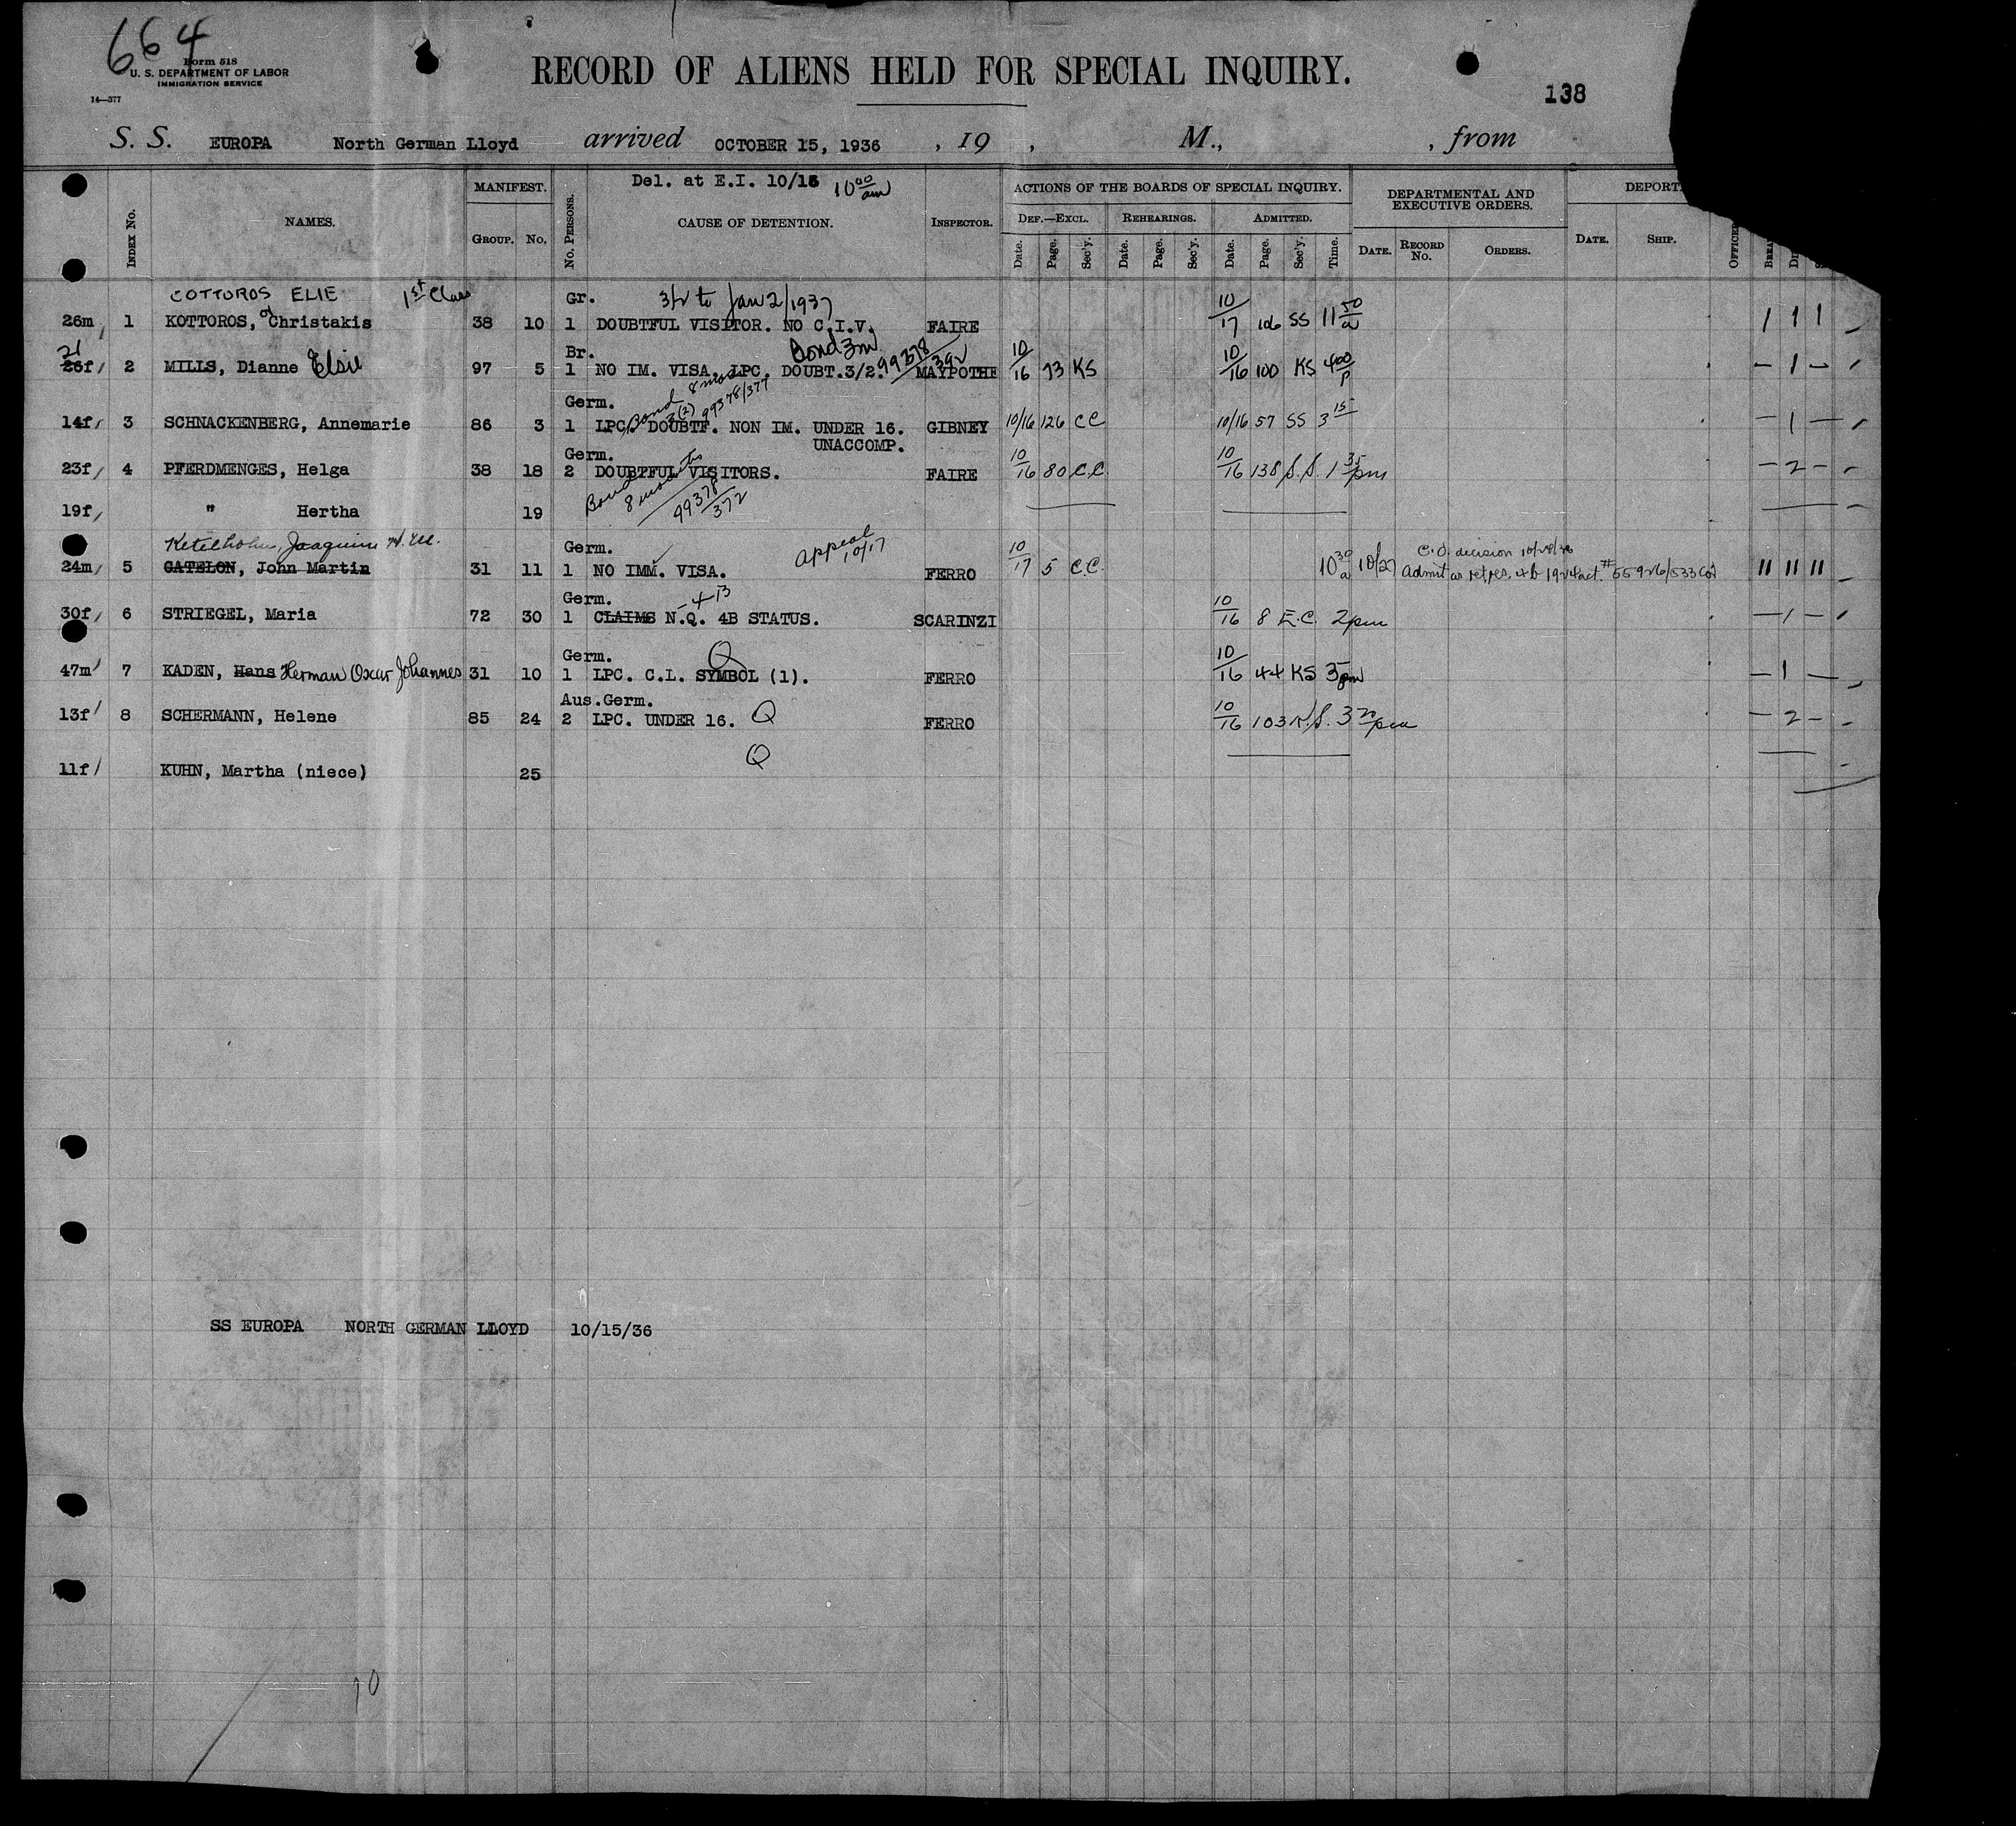 664
Form 518
U. S. DEPARTMENT OF LABOR
IMMIGRATION SERVICE
14—377
RECORD OF ALIENS HELD FOR SPECIAL INQUIRY.
138
S. S. EUROPA North German Lloyd arrived OCTOBER 15, 1936 , 19 , M., , from
Del. at E.I. 10/15 10 00 am
INDEX No. NAMES. MANIFEST. GROUP. No. No. PERSONS. CAUSE OF DETENTION. INSPECTOR.
ACTIONS OF THE BOARDS OF SPECIAL INQUIRY. DEF.—EXCL. REHEARINGS. ADMITTED.
Date. Page. Sec'y. Date. Page. Sec'y. Date. Page. Sec'y. Time.
DEPARTMENTAL AND EXECUTIVE ORDERS. DATE. RECORD No. ORDERS.
DEPORT DATE. SHIP.
COTTOROS ELIE 1st Class Gr. 3/2 to Jan 2/1937
26m 1 KOTTOROS, Christakis 38 10 1 DOUBTFUL VISITOR. NO C.I.V. FAIRE 10/17 106 SS 11 50 a
21 Br. Bond 3m 99378/392
26f 2 MILLS, Dianne Elsie 97 5 1 NO IM. VISA. LPC. DOUBT.3/2. MAYPOTHE 10/16 73 KS 10/16 100 KS 4 00 P
Germ. Bond 8 mos 3(2) 99378/377
14f 3 SCHNACKENBERG, Annemarie 86 3 1 LPC. DOUBTF. NON IM. UNDER 16. GIBNEY 10/16 126 CC 10/16 57 SS 3 15
UNACCOMP.
Germ.
23f 4 PFERDMENGES, Helga 38 18 2 DOUBTFUL VISITORS. FAIRE 10/16 80 C.C. 10/16 138 S.S. 1 35 pm
Bond 8 mos 99378/372
19f " Hertha 19
Ketelhohn, Joaquin Germ. appeal 10/17
24m 5 GATELON, John Martin 31 11 1 NO IMM. VISA. FERRO 10/17 5 C.C. 10 30 a 10/27 C.O. decision
Admit as ret res. 4b 1924 act. # 55926/533
Germ. -4-13
30f 6 STRIEGEL, Maria 72 30 1 CLAIMS N.Q. 4B STATUS. SCARINZI 10/16 8 E.C. 2pm
Germ. Q
47m 7 KADEN, Hans Herman Oscar Johannes 31 10 1 LPC. C.L. SYMBOL (1). FERRO 10/16 44 KS 3 pm
Aus.Germ.
13f 8 SCHERMANN, Helene 85 24 2 LPC. UNDER 16. Q FERRO 10/16 103 K.S. 3 20 pm
Q
11f KUHN, Martha (niece) 25
SS EUROPA NORTH GERMAN LLOYD 10/15/36
10